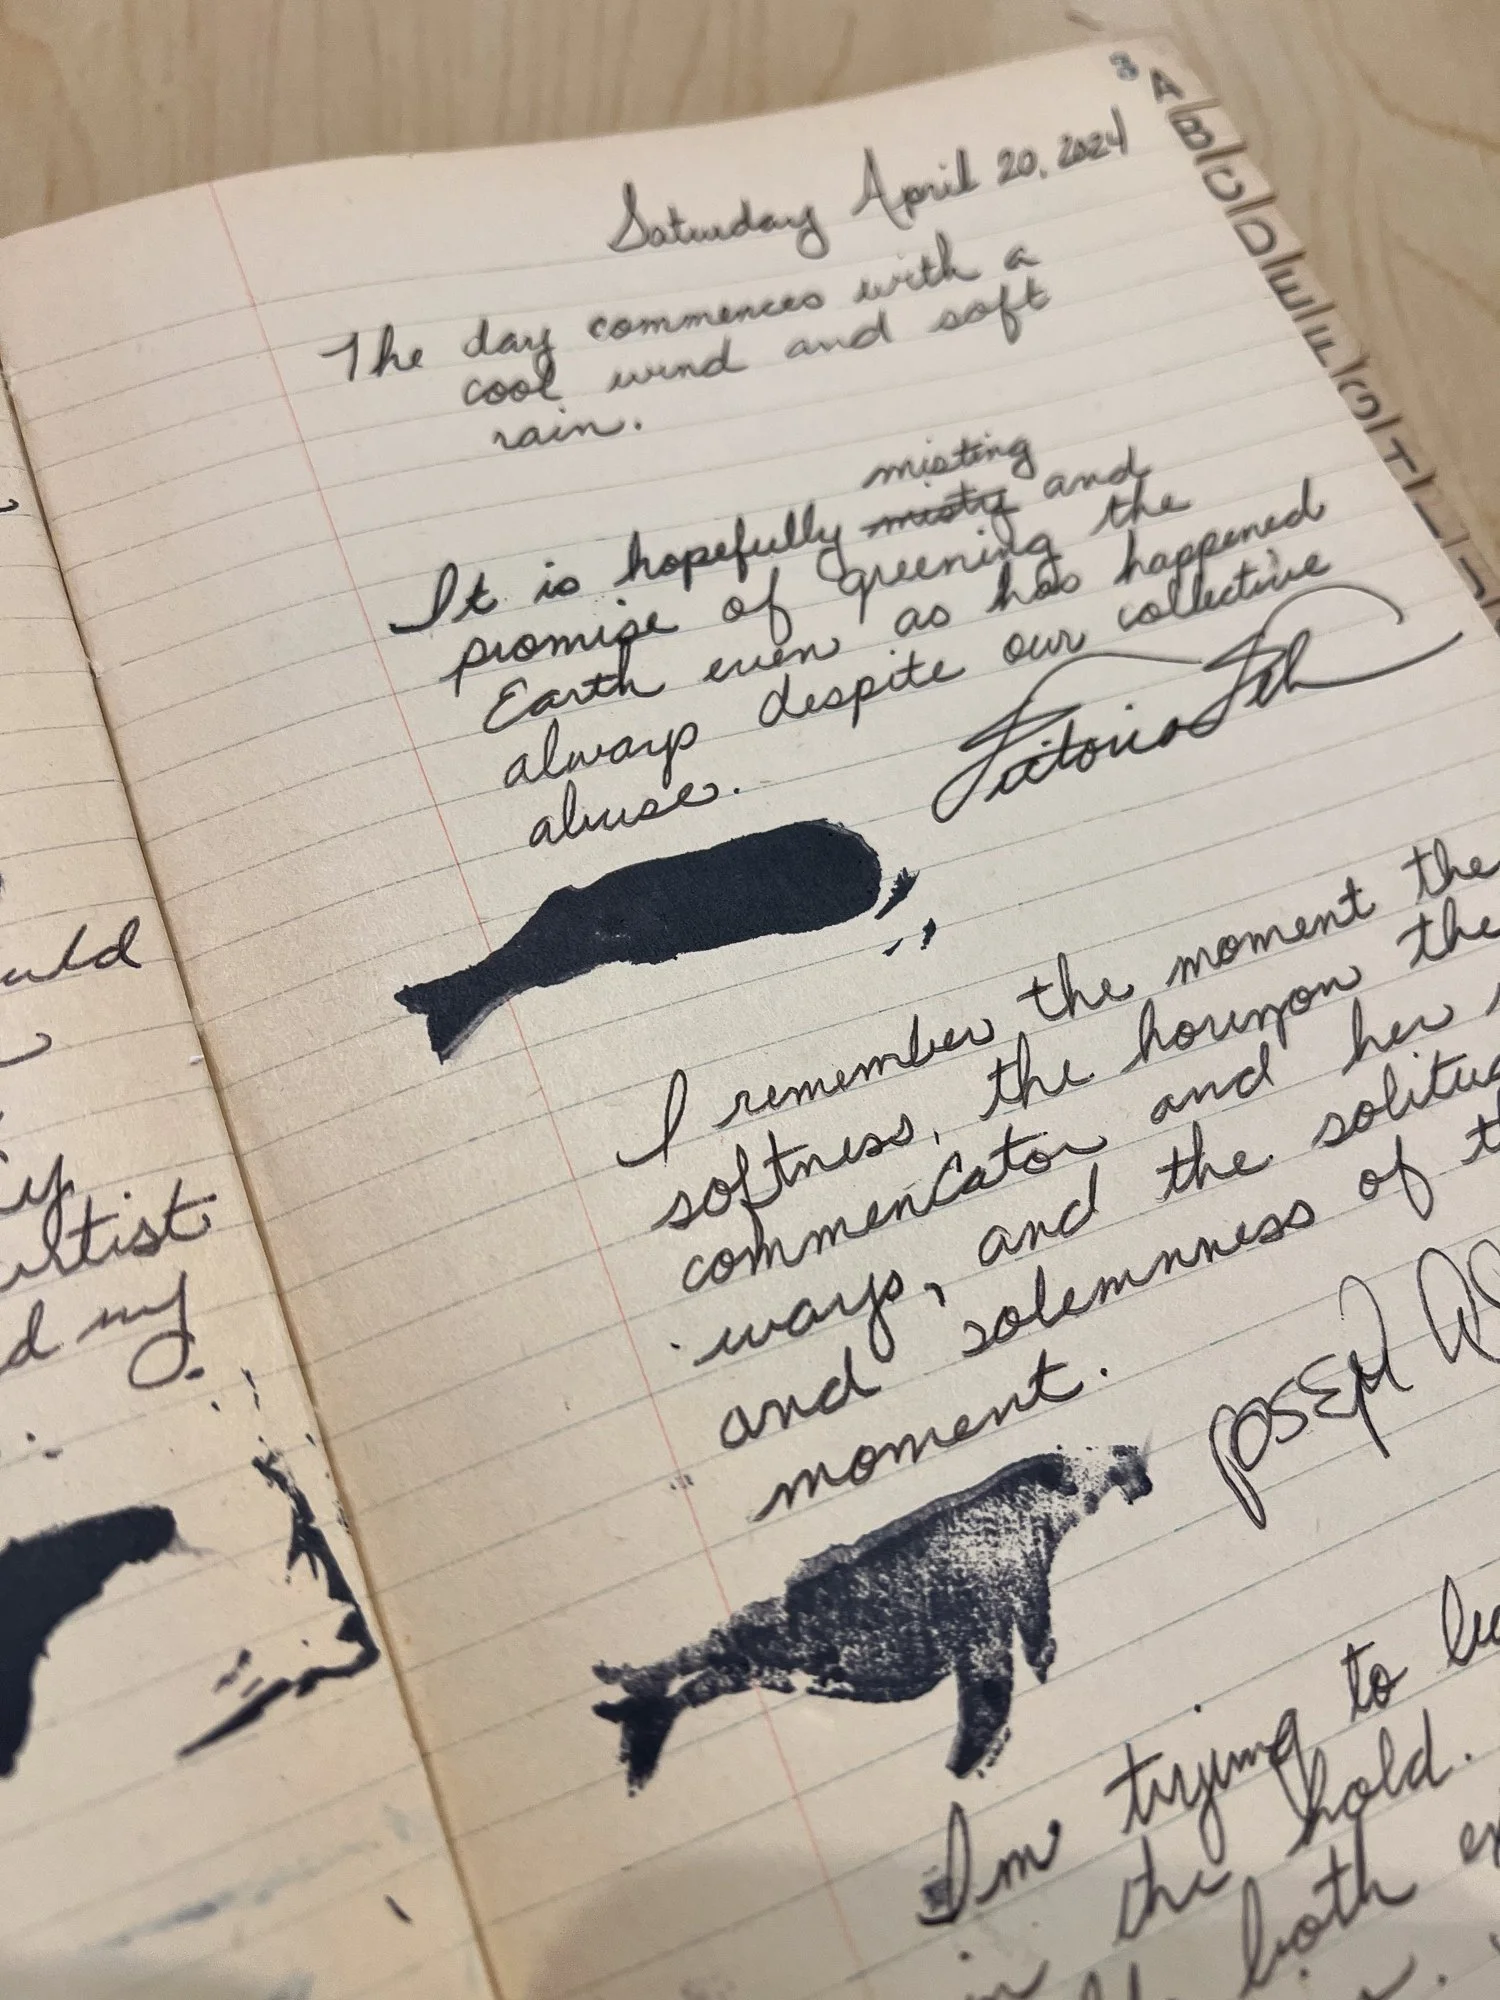 3
A
B
C
D
E
F
G
Saturday April 20, 2024
The day commences with a
cool wind and soft
rain.
misting
It is hopefully misty and
promise of greening the
Earth even as has happened
always despite our collective
abuse.
I remember the moment the
softness, the horizon the
commentator and her
ways, and the
and solemnness of
moment.
Joseph
I'm trying to
in the hold.
both
uld
artist
d my